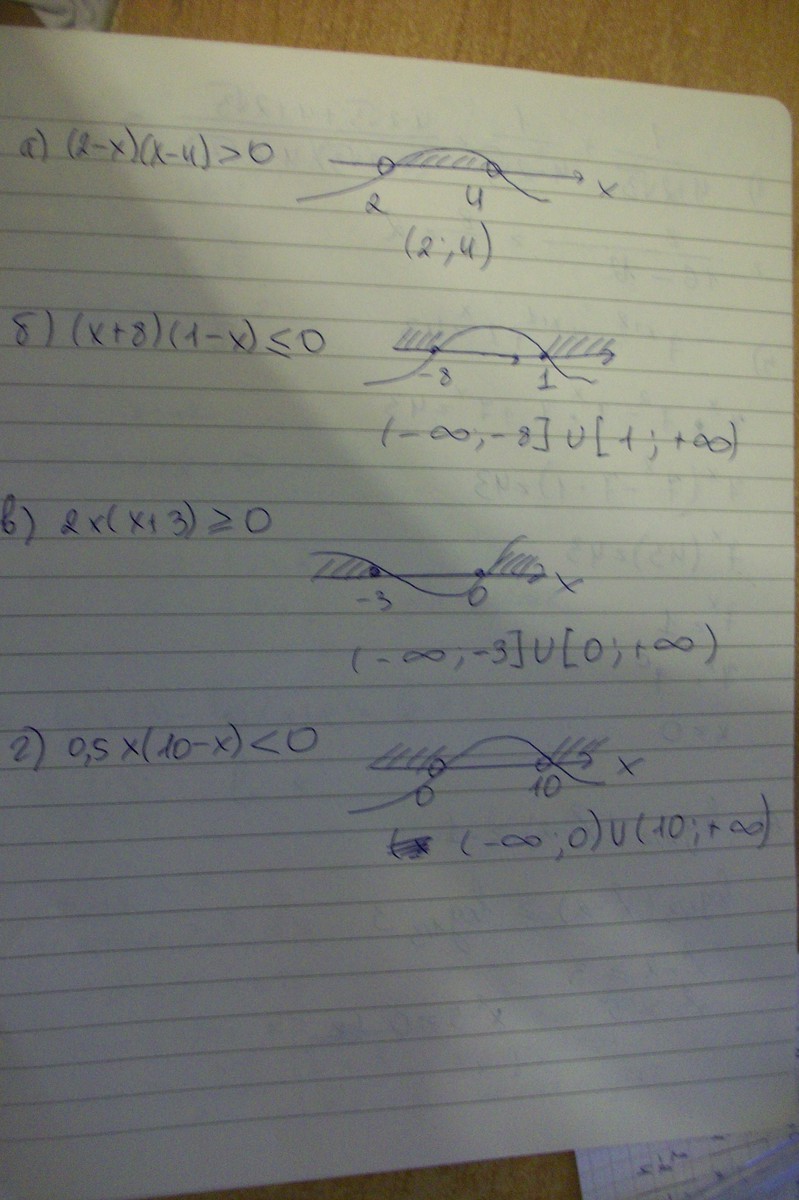 а) (2-x)(x-4)>0
2 4 x
(2;4)
б) (x+8)(1-x)≤0
-8 1
(-∞;-8]∪[1;+∞)
в) 2x(x+3)≥0
-3 0 x
(-∞;-3]∪[0;+∞)
г) 0,5x(10-x)<0
0 10 x
(-∞;0)∪(10;+∞)